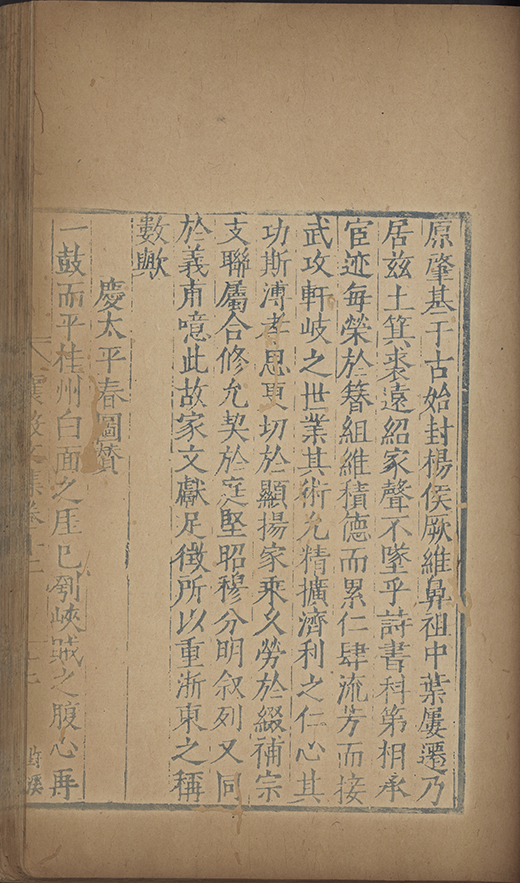 原肇基于古始封楊侯厥維鼻祖中葉屢遷乃
居兹土箕裘遠紹家聲不墜乎詩書科第相承
宦迹每榮於簪組維積德而累仁肆流芳而接
武攻軒岐之世業其術允精擴濟利之仁心其
功斯溥孝思更切於顯揚家乘久勞於綴補宗
支聯屬合修允契於庭堅昭穆分明叙列又同
於義甫噫此故家文獻足徵所以重浙東之稱
數歟
慶太平春圖贊
一鼓而平桂州白面之压已刳峽賊之腹心再
襄毅文集卷十